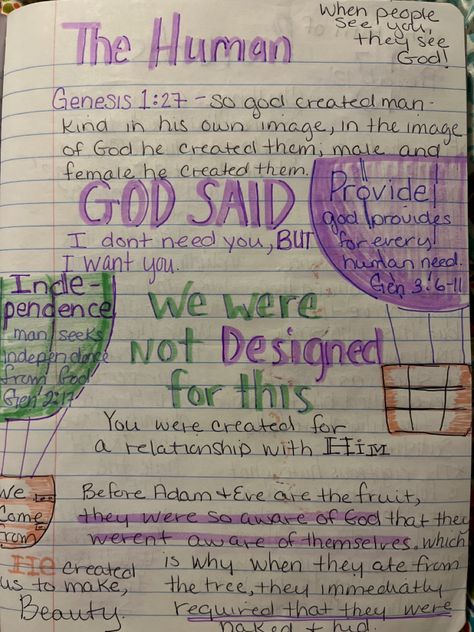 The Human
when people
see you,
they see
God!
Genesis 1:27 - so god created man-
kind in his own image, in the image
of God he created them; male and
female he created them.
GOD SAID
I dont need you, BUT
I want you.
Provide!
god provides
for every
human need.
Gen 3:6-11
Inde-
pendence
man seeks
independence
from God
Gen 2:17
We were
NOT Designed
for this
You were created for
a relationship with HIM
We
Come
From
Before Adam + Eve are the fruit,
they were so aware of God that the
werent aware of themselves. which
is why when they ate from
the tree, they immediatly
required that they were
naked + hid.
He created
us to make,
Beauty.